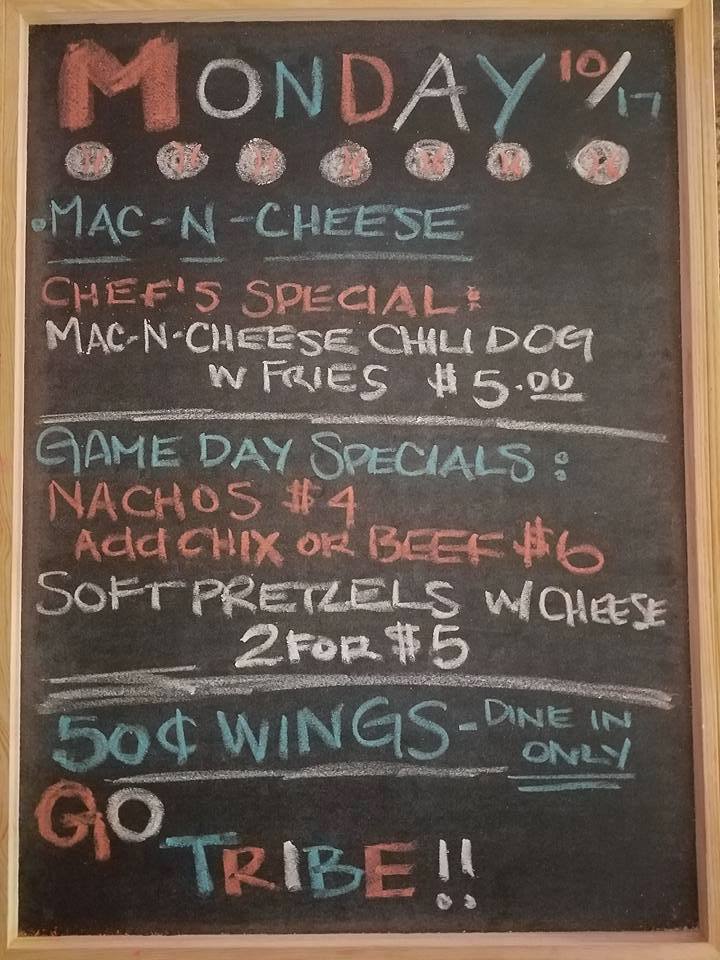 MONDAY 10/17
•MAC-N-CHEESE
CHEF'S SPECIAL:
MAC-N-CHEESE CHILI DOG
W FRIES $5.00
GAME DAY SPECIALS:
NACHOS $4
Add CHIX OR BEEF $6
SOFT PRETZELS W/CHEESE
2 FOR $5
50¢ WINGS-DINE IN
ONLY
GO
TRIBE!!